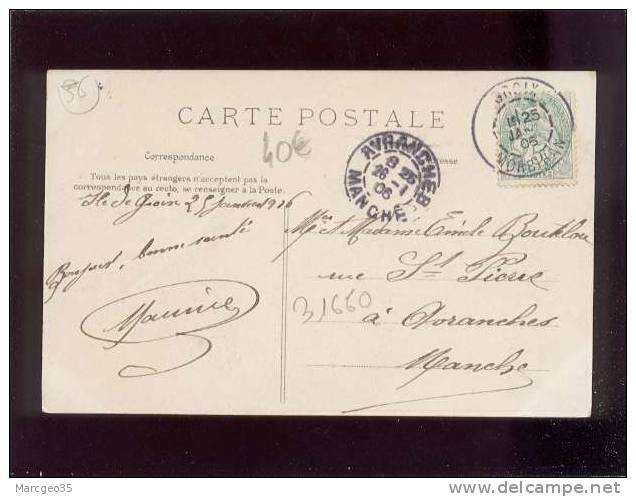 56
CARTE POSTALE
Correspondance
Tous les pays étrangers n'acceptent pas la
correspondance au recto, se renseigner à la Poste.
40€
Ile de Groix 25 Janvier 1906
Bonjour, bonne santé
Maurice
AVRANCHES
8 25
26 - 1
06
MANCHE
GROIX
25
JANV
06
MORBIHAN
et Madame Emile
rue St Pierre
à Avranches
Manche
31660
Marcgeo35
www.delcampe.net